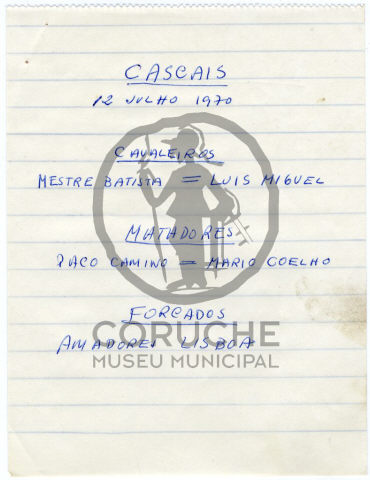 CASCAIS
12 JULHO 1970
CAVALEIROS
MESTRE BATISTA = LUIS MIGUEL
MATADORES
PACO CAMINO = MARIO COELHO
FORCADOS
CORUCHE
AMADORES LISBOA
MUSEU MUNICIPAL